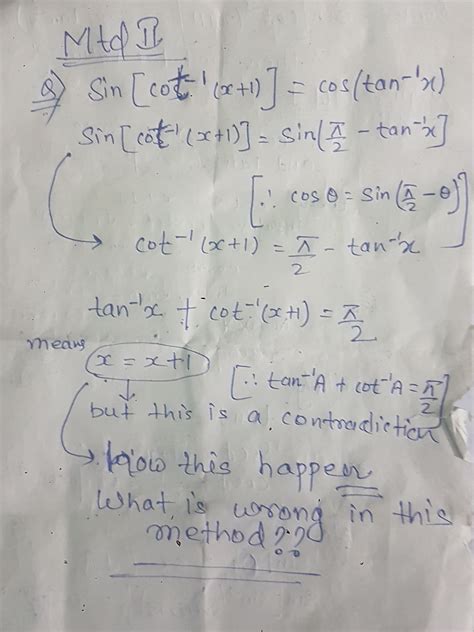 Mtd II
Q) Sin[cot⁻¹(x+1)] = cos(tan⁻¹x)
Sin[cot⁻¹(x+1)] = Sin(π/2 - tan⁻¹x]
[∵ cosθ = Sin(π/2 - θ)]
cot⁻¹(x+1) = π/2 - tan⁻¹x
tan⁻¹x + cot⁻¹(x+1) = π/2
means x = x+1
[∵ tan⁻¹A + cot⁻¹A = π/2]
but this is a contradiction
how this happen
What is wrong in this
method??